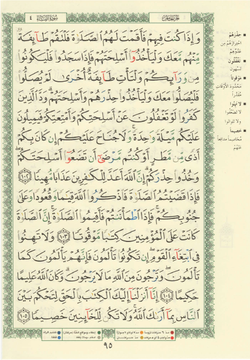 الجزء الخامس
سورة النساء ٤
وَإِذَا كُنتَ فِيهِمْ فَأَقَمْتَ لَهُمُ ٱلصَّلَوٰةَ فَلْتَقُمْ طَآئِفَةٌ
مِّنْهُم مَّعَكَ وَلْيَأْخُذُوٓا۟ أَسْلِحَتَهُمْ فَإِذَا سَجَدُوا۟ فَلْيَكُونُوا۟
مِن وَرَآئِكُمْ وَلْتَأْتِ طَآئِفَةٌ أُخْرَىٰ لَمْ يُصَلُّوا۟
فَلْيُصَلُّوا۟ مَعَكَ وَلْيَأْخُذُوا۟ حِذْرَهُمْ وَأَسْلِحَتَهُمْ وَدَّ ٱلَّذِينَ
كَفَرُوا۟ لَوْ تَغْفُلُونَ عَنْ أَسْلِحَتِكُمْ وَأَمْتِعَتِكُمْ فَيَمِيلُونَ
عَلَيْكُم مَّيْلَةً وَٰحِدَةً وَلَا جُنَاحَ عَلَيْكُمْ إِن كَانَ بِكُمْ
أَذًى مِّن مَّطَرٍ أَوْ كُنتُم مَّرْضَىٰٓ أَن تَضَعُوٓا۟ أَسْلِحَتَكُمْ
وَخُذُوا۟ حِذْرَكُمْ إِنَّ ٱللَّهَ أَعَدَّ لِلْكَٰفِرِينَ عَذَابًا مُّهِينًا ١٠٢
فَإِذَا قَضَيْتُمُ ٱلصَّلَوٰةَ فَٱذْكُرُوا۟ ٱللَّهَ قِيَٰمًا وَقُعُودًا وَعَلَىٰ
جُنُوبِكُمْ فَإِذَا ٱطْمَأْنَنتُمْ فَأَقِيمُوا۟ ٱلصَّلَوٰةَ إِنَّ ٱلصَّلَوٰةَ
كَانَتْ عَلَى ٱلْمُؤْمِنِينَ كِتَٰبًا مَّوْقُوتًا ١٠٣ وَلَا تَهِنُوا۟
فِى ٱبْتِغَآءِ ٱلْقَوْمِ إِن تَكُونُوا۟ تَأْلَمُونَ فَإِنَّهُمْ يَأْلَمُونَ كَمَا
تَأْلَمُونَ وَتَرْجُونَ مِنَ ٱللَّهِ مَا لَا يَرْجُونَ وَكَانَ ٱللَّهُ عَلِيمًا
حَكِيمًا ١٠٤ إِنَّآ أَنزَلْنَآ إِلَيْكَ ٱلْكِتَٰبَ بِٱلْحَقِّ لِتَحْكُمَ بَيْنَ
ٱلنَّاسِ بِمَآ أَرَىٰكَ ٱللَّهُ وَلَا تَكُن لِّلْخَآئِنِينَ خَصِيمًا ١٠٥
٩٥